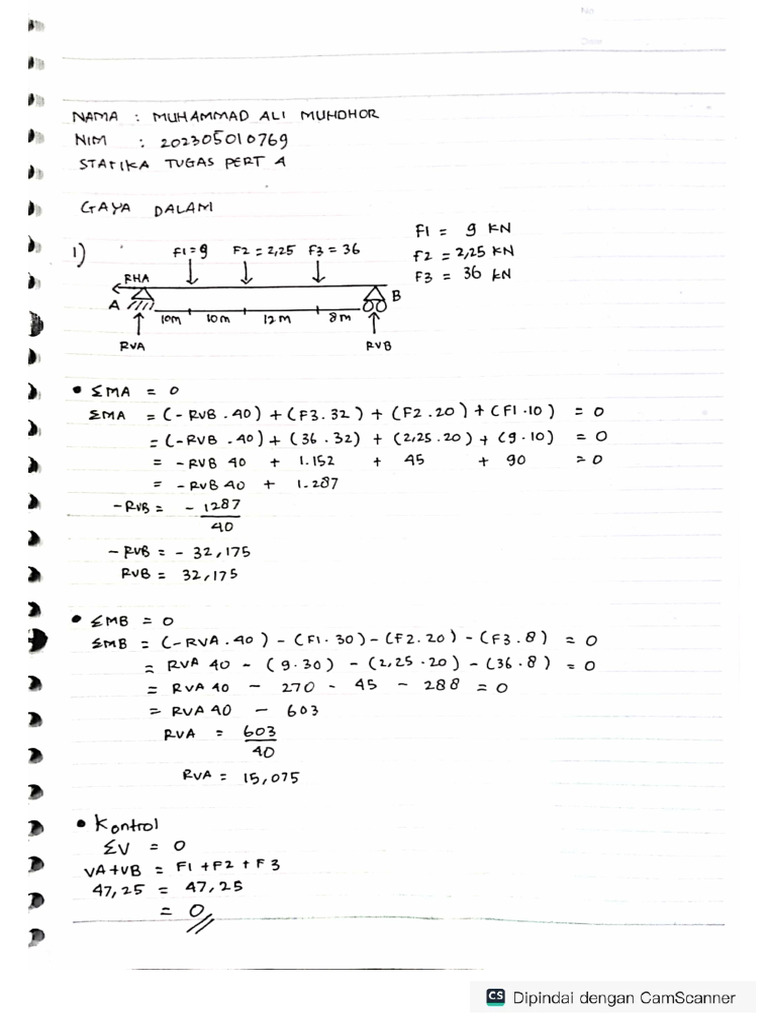 No
Date
NAMA : MUHAMMAD ALI MUHDHOR
NIM : 202305010769
STATIKA TUGAS PERT 4
GAYA DALAM
F1 = 9 KN
1) F1=9 F2=2,25 F3=36 F2 = 2,25 KN
RHA F3 = 36 KN
A B
10m 10m 12m 8m
RVA RVB
• ΣMA = 0
ΣMA = (-RVB . 40) + (F3.32) + (F2.20) + (F1.10) = 0
= (-RVB . 40) + (36.32) + (2,25.20) + (9.10) = 0
= -RVB 40 + 1.152 + 45 + 90 = 0
= -RVB 40 + 1.287
-RVB = - 1287
40
-RVB = - 32,175
RVB = 32,175
• ΣMB = 0
ΣMB = (-RVA.40) - (F1.30) - (F2.20) - (F3.8) = 0
= RVA 40 - (9.30) - (2,25.20) - (36.8) = 0
= RVA 40 - 270 - 45 - 288 = 0
= RVA 40 - 603
RVA = 603
40
RVA = 15,075
• Kontrol
ΣV = 0
VA+VB = F1+F2+F3
47,25 = 47,25
= 0//
CS Dipindai dengan CamScanner